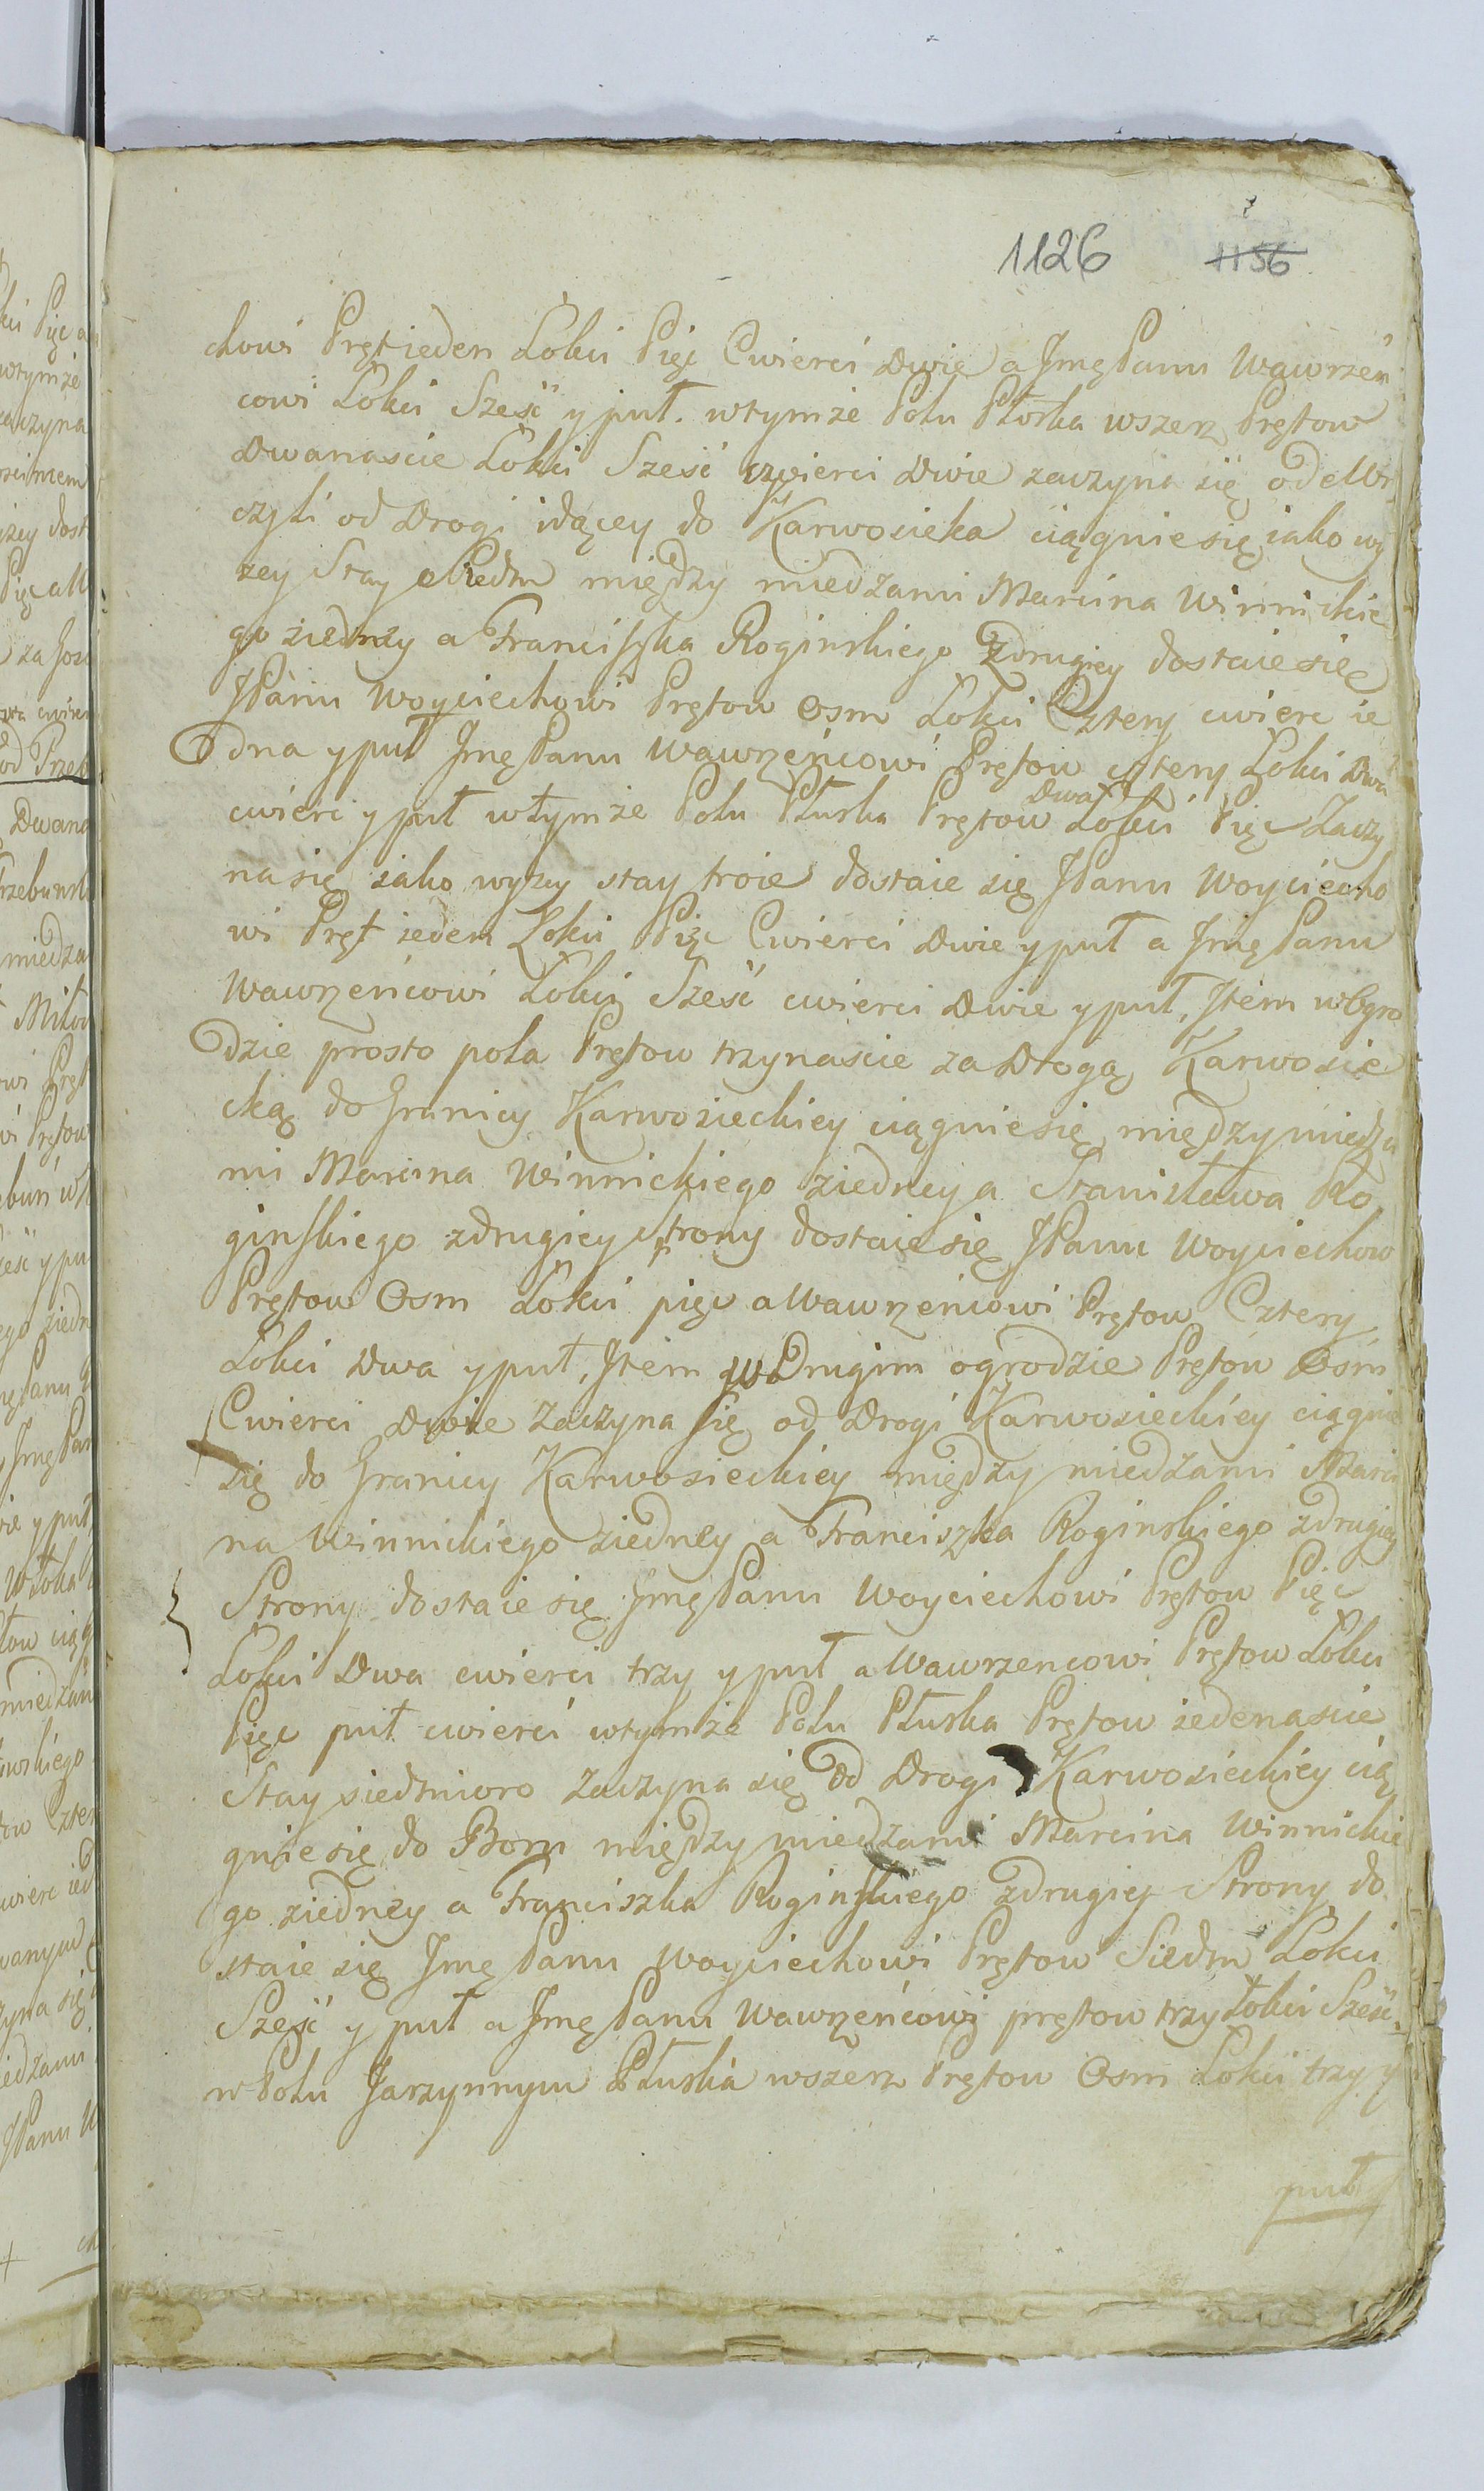 1126 1156
chowi Pręt ieden Łokci Pięć Cwierci Dwie a Jmę Panu Wawrzeń
cowi Łokci Sześć y puł. wtymże Polu Płoska wszerz Prętow
Dwanascie Łokci Sześć cwierci Dwie zaczyna się od Wsi
czyli od Drogi idącey do Karwosieka ciągnie się iako wy
zey Stay Siedm między miedzami Marcina Winnickie
go ziedney a Franciszka Roginskiego zdrugiey dostaie się
JPanu Woyciechowi Prętow Osm Łokci Cztery cwierc ie
dna y puł Jmę Panu Wawrzeńcowi Prętow cztery Łokci Dwa
cwierc y puł wtymże Polu Płuska Prętow Dwa Łokci Pięc Zaczy
na się iako wyzey stay troie dostaie się JPanu Woyciecho
wi Pręt ieden Łokci Pięc Cwierci Dwie y puł a Jmę Panu
Wawrzeńcowi Łokci Sześć cwierci Dwie y puł, Item wOgro
dzie prosto pola Prętow trzynascie za Drogą Karwosie
cką do Granicy Karwosieckiey ciągnie się między miedza
mi Marcina Winnickiego ziedney a Stanisława Ro
ginskiego zdrugiey Strony dostaie się JPanu Woyciechow
Prętow Osm Łokci pięc a Wawrzencowi Prętow Cztery
Łokci Dwa y puł, Item w Drugim ogrodzie Prętow Osm
Cwierci Dwie Zaczyna się od Drogi Karwosieckiey ciągnie
się do Granicy Karwosieckiey między miedzami Marci
na Winnickiego ziedney a Franciszka Roginskiego zdrugiey
Strony dostaie się Jmę Panu Woyciechowi Prętow Pięc
Łokci Dwa cwierci trzy y puł a Wawrzencowi Prętow Łokci
Pięc puł cwierci wtymże Polu Płuska Prętow iedenascie
Stay siedmioro Zaczyna się Od Drogi Karwosieckiey cią
gnie się do Boru między miedzami Marcina Winnickie
go ziedney a Franciszka Roginskiego zdrugiey Strony do
staie się Jmę Panu Woyciechowi Prętow Siedm Łokci
Sześć y puł a Jmę Panu Wawrzeńcowi prętow trzy Łokci Sześć.
w Polu Jarzynnym Płuska wszerz Prętow Osm Łokci trzy y
puł